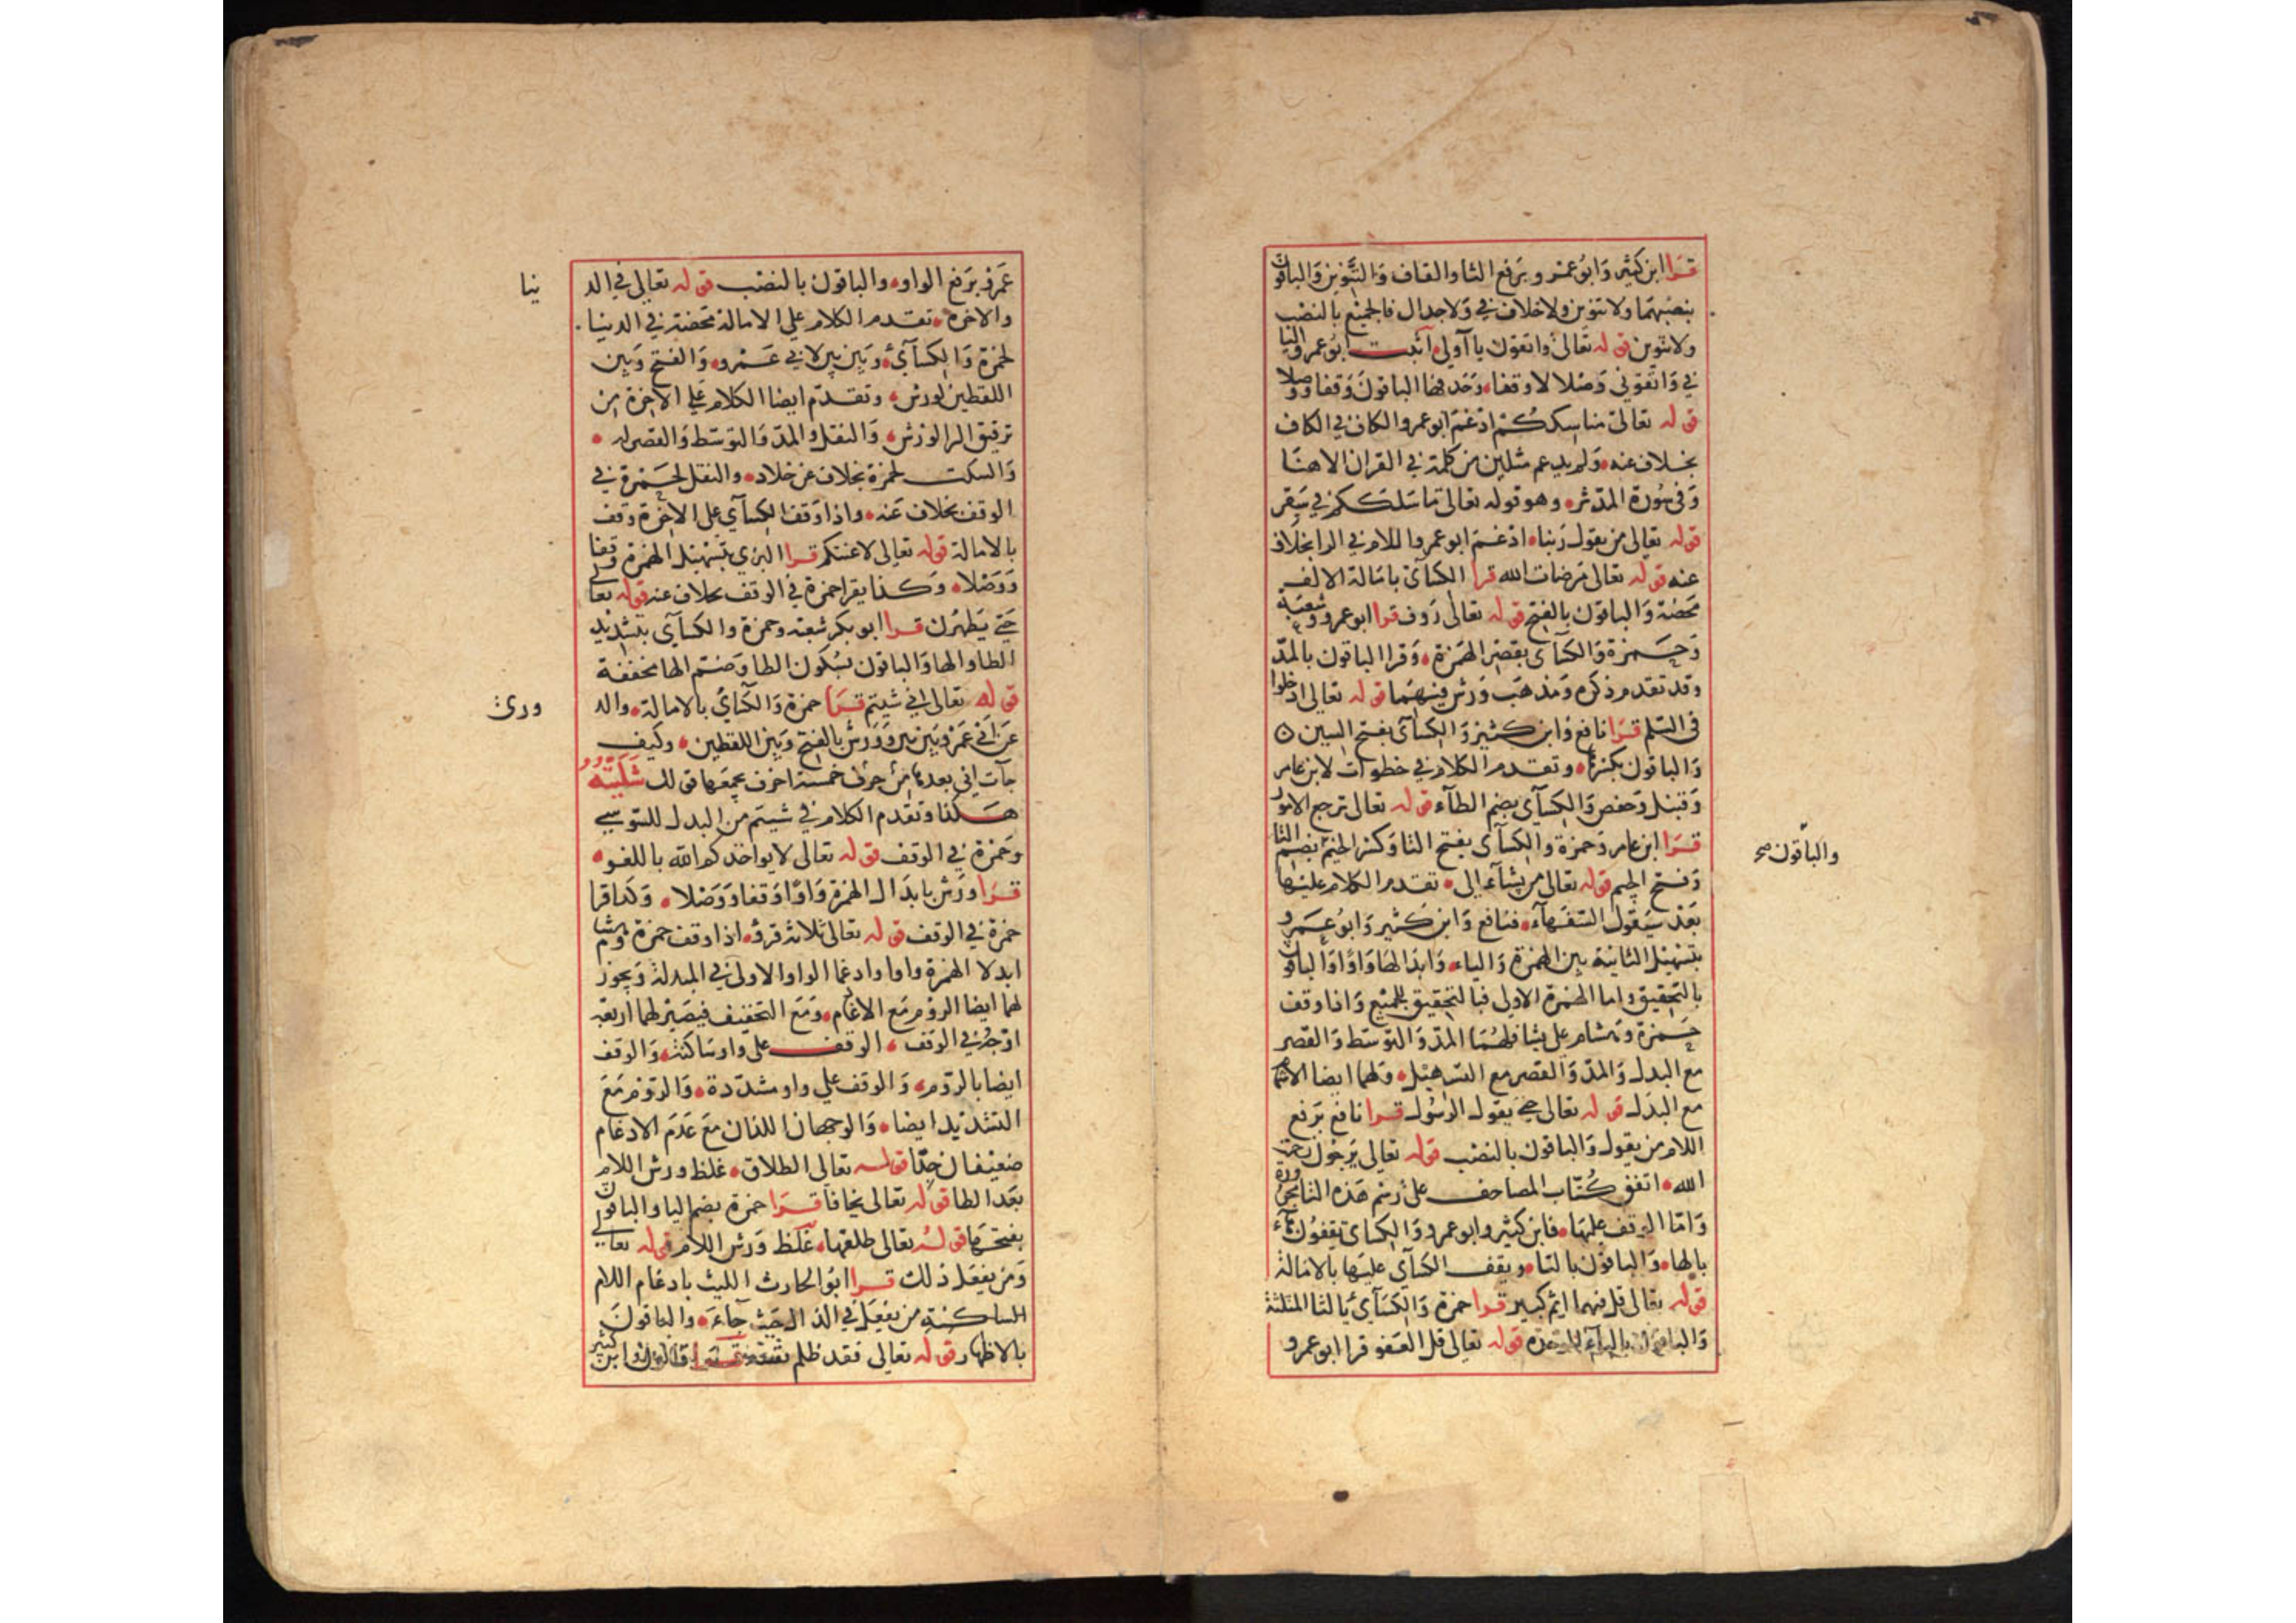 قرا ابن كثير وابو عمرو برفع الثا والقاف والتنوين والباقون
بنصبهما ولا تنوين ولا خلاف في ولا جدال فالجميع بالنصب
ولا تنوين قوله تعالى واتقون يا آولي اثبت ابو عمرو اليا
في واتقوني وصلا لا وقفا وحذفها الباقون وقفا ووصلا
قوله تعالى مناسككم ادغم ابو عمرو الكاف في الكاف
بخلاف عنه ولم يدغم مثلين من كلمة في القران الا هنا
وفي سورة المدثر وهو قوله تعالى ما سلككم في سقر
قوله تعالى من يقول ربنا ادغم ابو عمرو اللام في الرا بخلاف
عنه قوله تعالى مرضات الله قرا الكسائى بامالة الالف
محضة والباقون بالفتح قوله تعالى رؤف قرا ابو عمرو وشعبة
وحمزة والكسآى بقصر الهمزة وقرا الباقون بالمد
وقد تقدم ذكره ومذهب ورش فيهما قوله تعالى ادخلوا
في السلم قرا نافع وابن كثير والكسآى بفتح السين
والباقون بكسرها وتقدم الكلام في خطوات لابن عامر
وقنبل وحفص والكسآى بضم الطآء قوله تعالى ترجع الامور
قرا ابن عامر وحمزة والكسآى بفتح التا وكسر الجيم بضم التا
والباقون صح
وفتح الجيم قوله تعالى من يشآء الى تقدم الكلام عليها
بعد سيقول السفهآء فنافع وابن كثير وابو عمرو
بتسهيل الثانية بين الهمزة والياء وابدالها واوا والباقون
بالتحقيق واما الهمزة الاولى فبالتحقيق للجميع واذا وقف
حمزة وهشام على يشا فلهما المد والتوسط والقصر
مع البدل والمد والقصر مع التسهيل ولهما ايضا الاشمام
مع البدل قوله تعالى حتى يقول الرسول قرا نافع برفع
اللام من يقول والباقون بالنصب قوله تعالى يرجون رحمت
الله اتفق كتاب المصاحف على رسم هذه التا مجرورة
واما الوقف عليها فابن كثير وابو عمرو والكسائى يقفون
بالهاء والباقون بالتا ويقف الكسآى عليها بالامالة
قوله تعالى قل فيهما اثم كبير قرا حمزة والكسآى بالثا المثلثة
والباقون بالبآء الموحدة قوله تعالى قل العفو قرا ابو عمرو
عمرو برفع الواو والباقون بالنصب قوله تعالى في الد
نيا
والاخرة تقدم الكلام على الامالة محضة في الدنيا
لحمزة والكسآئ وبين بين لابي عمرو والفتح وبين
اللفظين لورش وتقدم ايضا الكلام على الاخرة من
ترقيق الرا لورش والنقل والمد والتوسط والقصر له
والسكت لحمزة بخلاف عن خلاد والنقل لحمزة في
الوقف بخلاف عنه واذا وقف الكسآي على الاخرة وقف
بالامالة قوله تعالى لاعنتكم قرا البزي بتسهيل الهمزة وقفا
ووصلا وكذا يقرا حمزة في الوقف بخلاف عنه قوله تعالى
حتى يطهرن قرا ابو بكر شعبة وحمزة والكسآى بتشديد
الطا والها والباقون بسكون الطا وضم الها مخففة
قوله تعالى انى شيتم قرا حمزة والكسائى بالامالة والد
وري
عن ابي عمرو بين بين وورش بالفتح وبين اللفظين وكيف
جآت انى بعدها من حرف خمسة احرف يجمعها قولك شليته
هكذا وتقدم الكلام في شيتم من البدل للسوسي
وحمزة في الوقف قوله تعالى لا يواخذكم الله باللغو
قرا ورش بابدال الهمزة واوا وقفا ووصلا وكذا قرا
حمزة في الوقف قوله تعالى ثلاثة قرؤ اذا وقف حمزة وهشام
ابدلا الهمزة واوا وادغما الواو الاولى في المبدلة ويجوز
لهما ايضا الروم مع الادغام ومع التخفيف فيصير لهما اربعة
اوجه في الوقف الوقف على واو ساكنة والوقف
ايضا بالروم والوقف على واو مشددة والروم مع
التشديد ايضا والوجهان اللذان مع عدم الادغام
ضعيفان جدا قوله تعالى الطلاق غلظ ورش اللام
بعد الطا قوله تعالى يخافا قرا حمزة بضم اليا والباقون
بفتحها قوله تعالى طلقها غلظ ورش اللام قوله تعالى
ومن يفعل ذلك قرا ابو الحارث الليث بادغام اللام
الساكنة من يفعل في الذال حيث جآء والباقون
بالاظهار قوله تعالى فقد ظلم نفسه قالون وابن كثير